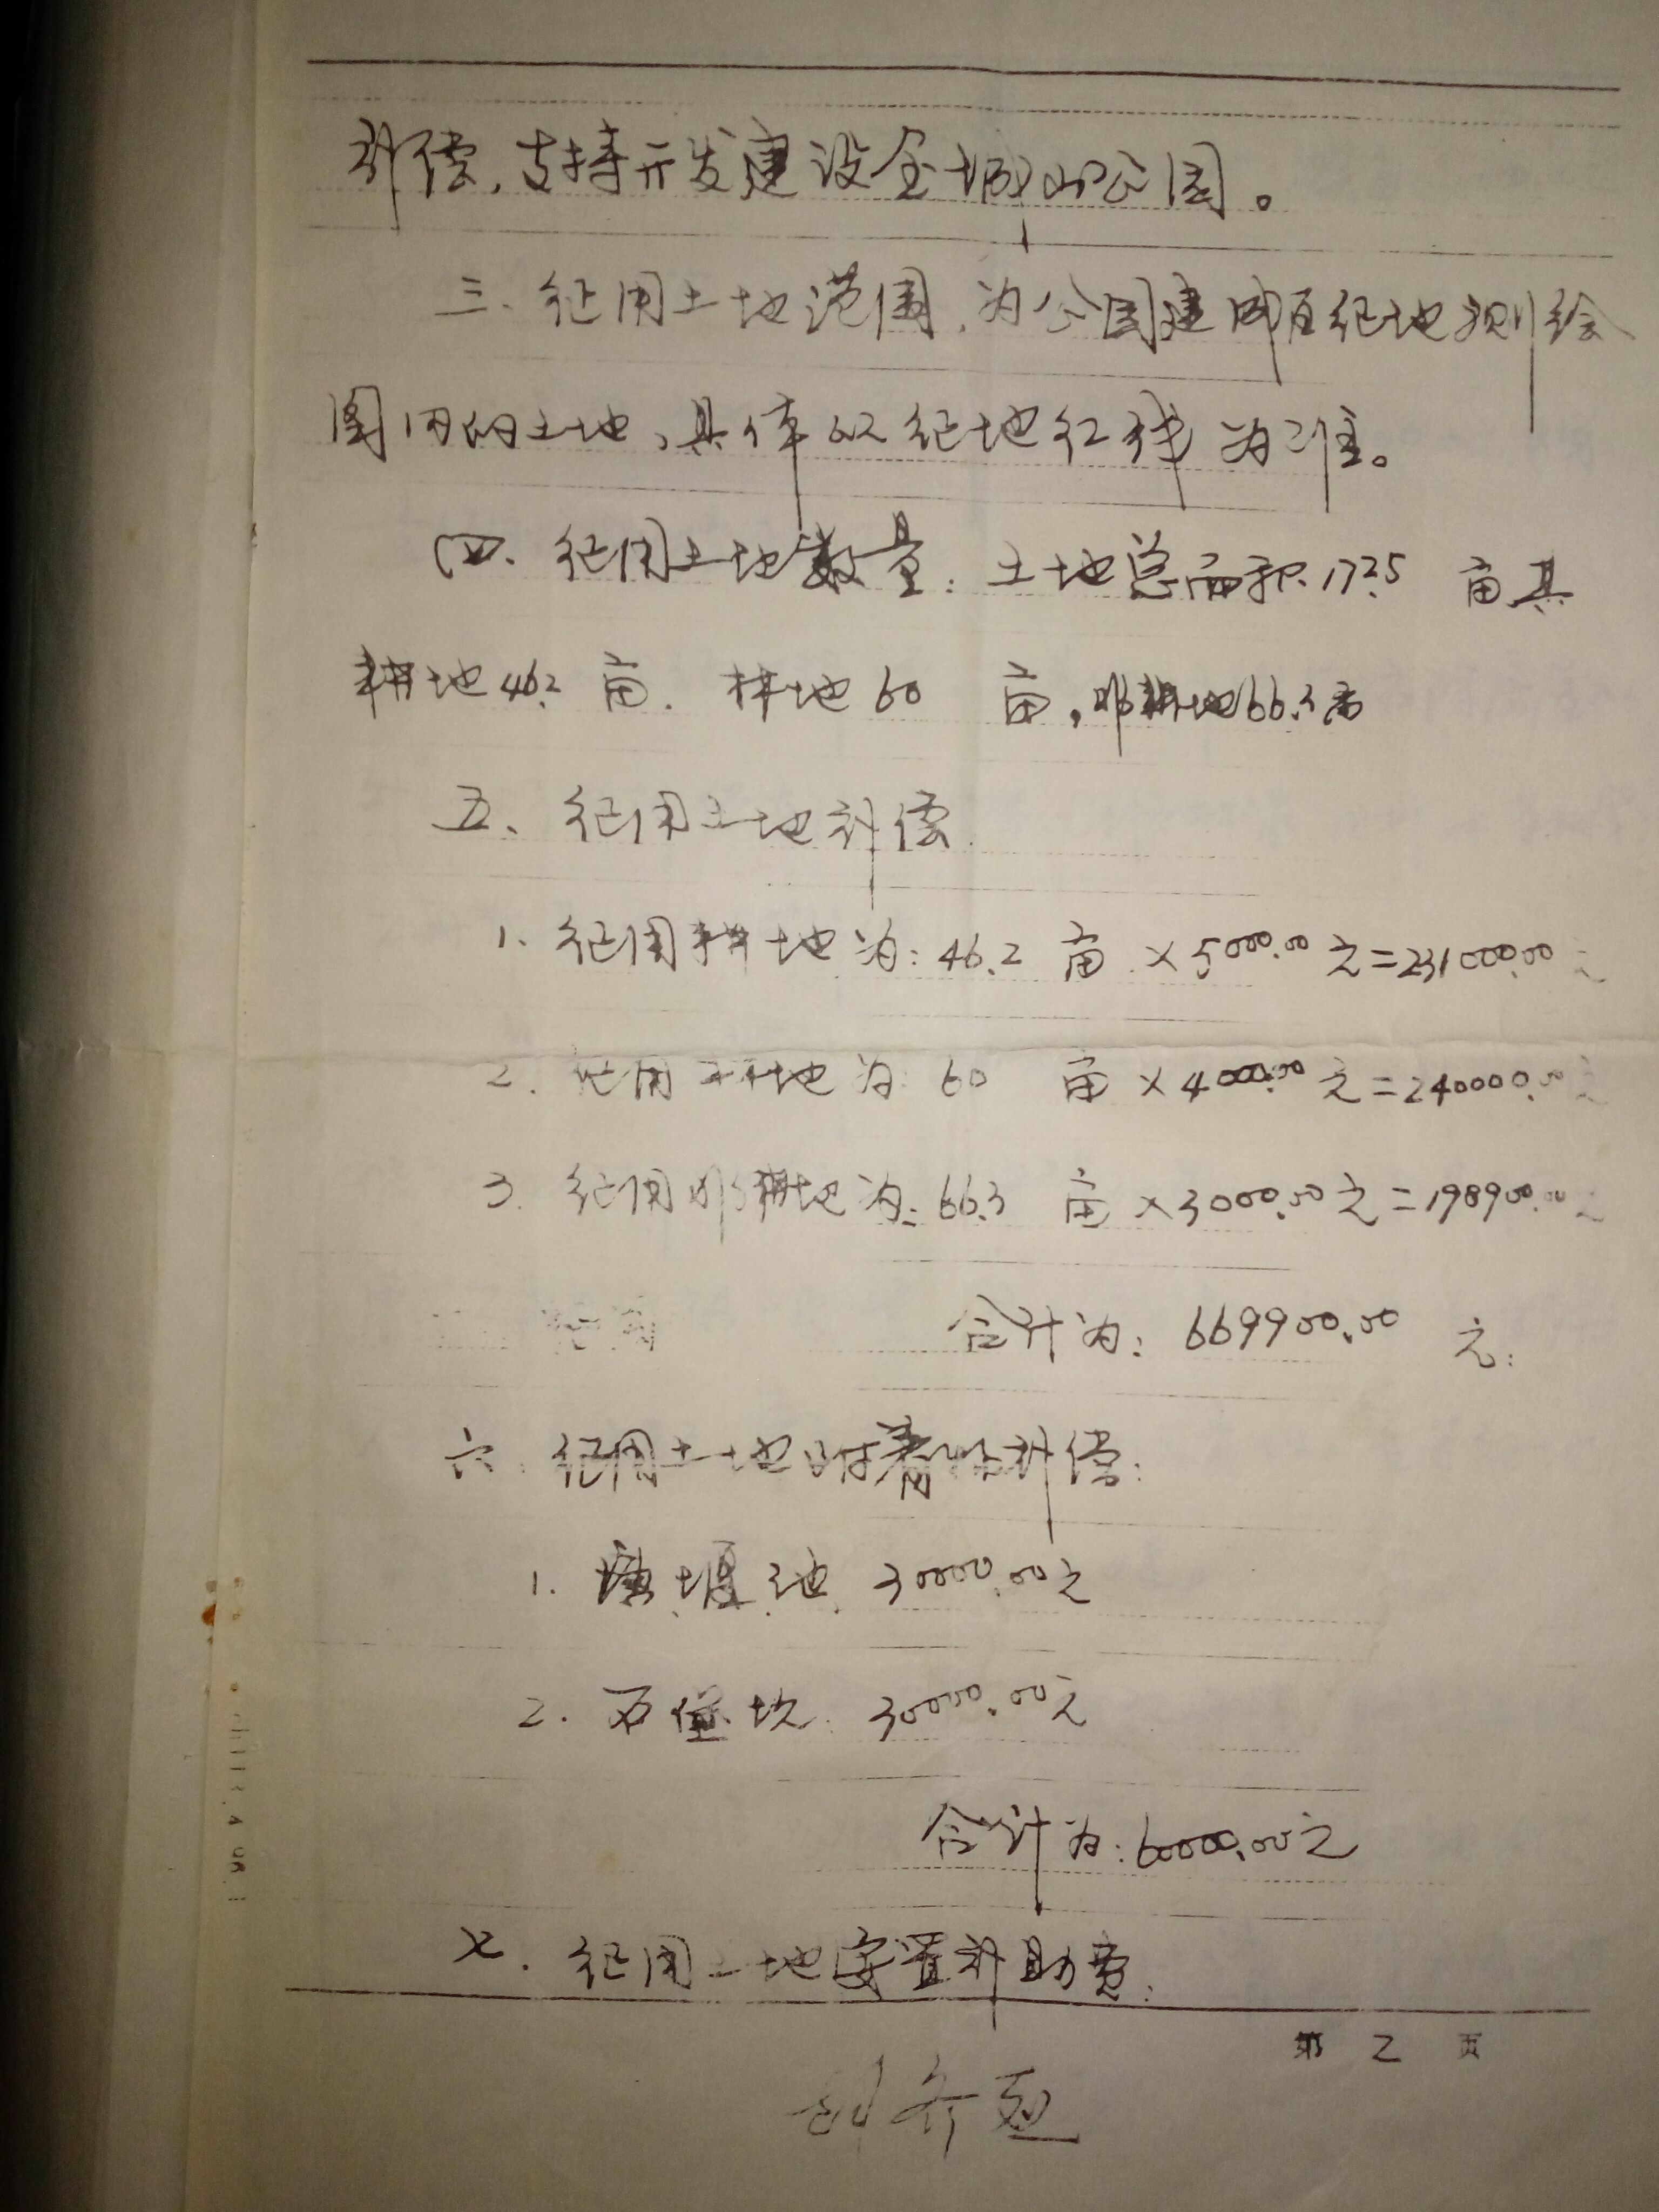 补偿,支持开发建设金城山公园。
三、征用土地范围,为公园建成区征地测绘
图内的土地,具体以征地红线为准。
四、征用土地数量:土地总面积172.5亩其
耕地46.2亩.林地60亩,非耕地66.3亩
五、征用土地补偿.
1、征用耕地为:46.2亩×5000.00元=231000.00元
2.征用林地为:60亩×4000.00元=240000.00元
3.征用非耕地为:66.3亩×3000.00元=198900.00元
合计为:669900.00元:
六.征用土地附着物补偿:
1.塘堰池30000.00元
2.石堡坎30000.00元
合计为:60000.00元
七.征用土地安置补助费:
第2页